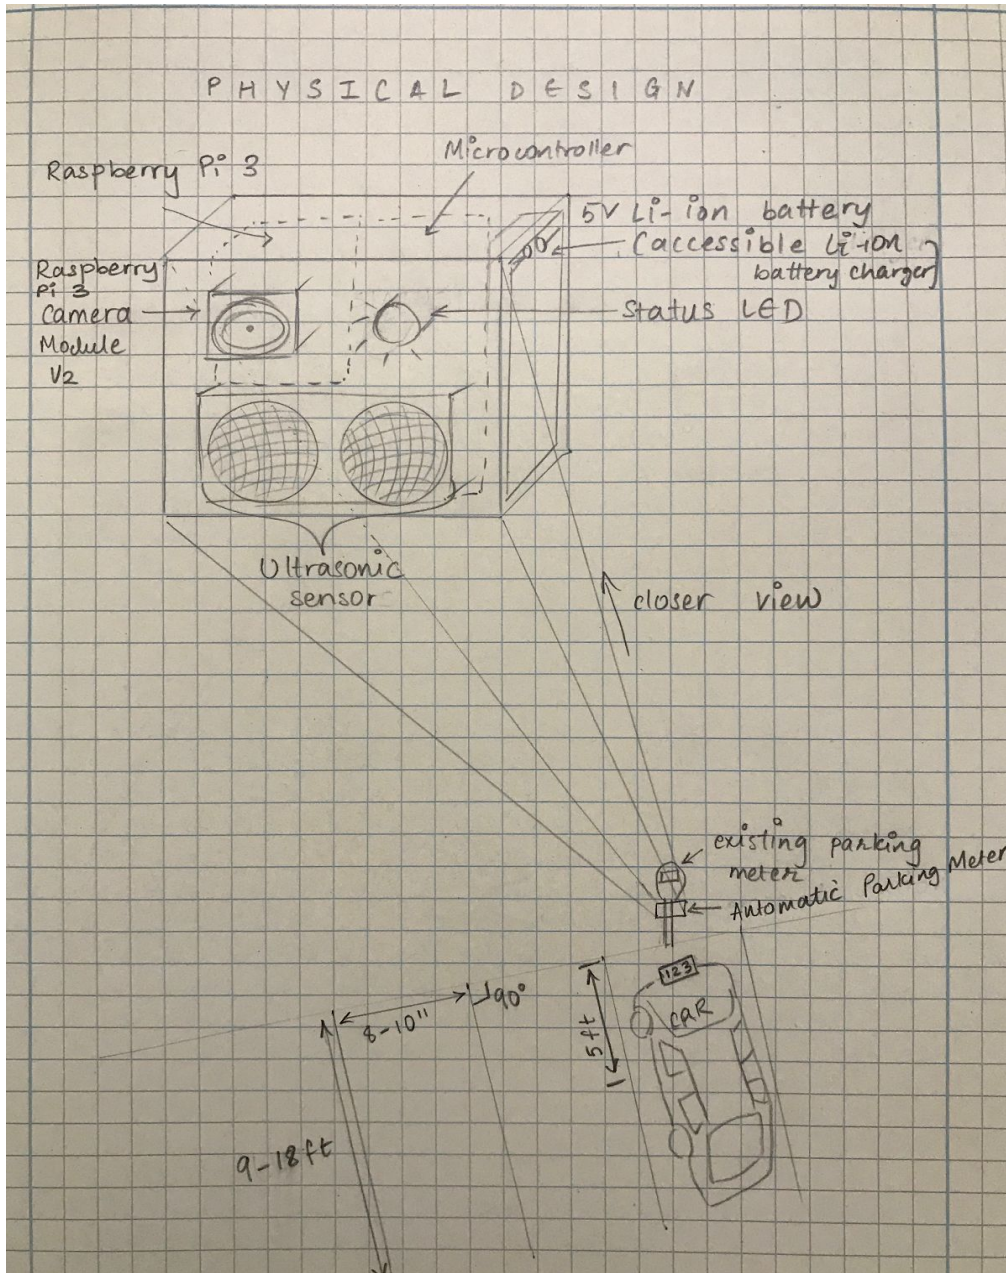 PHYSICAL DESIGN
Microcontroller
Raspberry Pi 3
5V Li-ion battery
(accessible Li-ion
battery charger)
Raspberry
Pi 3
Camera
Module
V2
Status LED
Ultrasonic
sensor
closer view
existing parking
meter
Automatic Parking Meter
123
CAR
90°
8-10"
5ft
9-18ft